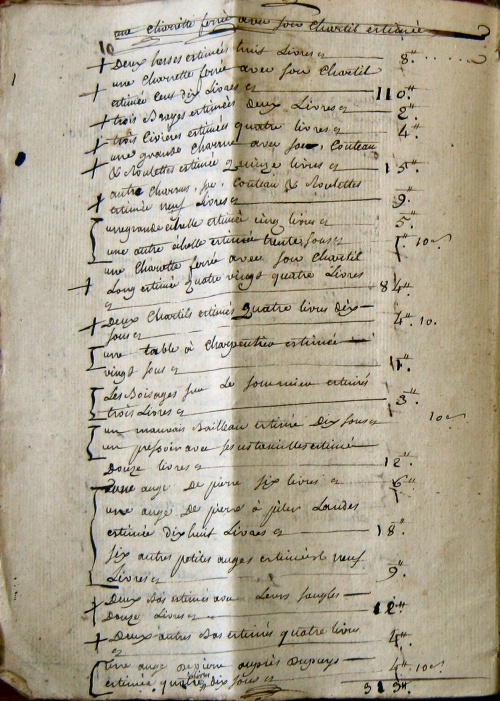 une charette ferrée avec son Chartil estimée
10
Deux herses estimées huit Livres 8"
une Charrette ferrée avec son Chartil
estimée Cent dix Livres 110"
trois Brayes estimées Deux Livres 2"
trois Civieres estimées quatre livres 4"
une grande Charrue avec son Couteau
& Roulettes estimée quinze livres 15"
autre Charrue, Couteau & Roulettes
estimée neuf Livres 9"
une grande echelle estimée cinq livres 5"
une autre echelle estimée trente sous 1" 10
une Charette ferrée avec son Chartil
Long estimée quatre vingt quatre Livres
84"
Deux Chartils estimés quatre livres dix
sous 4" 10.
une table à Charpentier estimée
vingt sous 1"
Les Boisages estimés
trois Livres 3"
un mauvais estimé Dix sous 10
un pressoir avec ses ustancilles estimée
Douze livres 12"
une auge De pierre six livres 6"
une auge De pierre à piler Landes
estimée dix huit Livres 18"
six autres petites auges estimées neuf
Livres 9"
Deux Bas estimés avec Leurs sangles
Douze Livres 12"
Deux autres Bas estimés quatre livres
4"
une auge De pierre auprès Du puys
estimée quatre livres dix sous 4" 10
313"